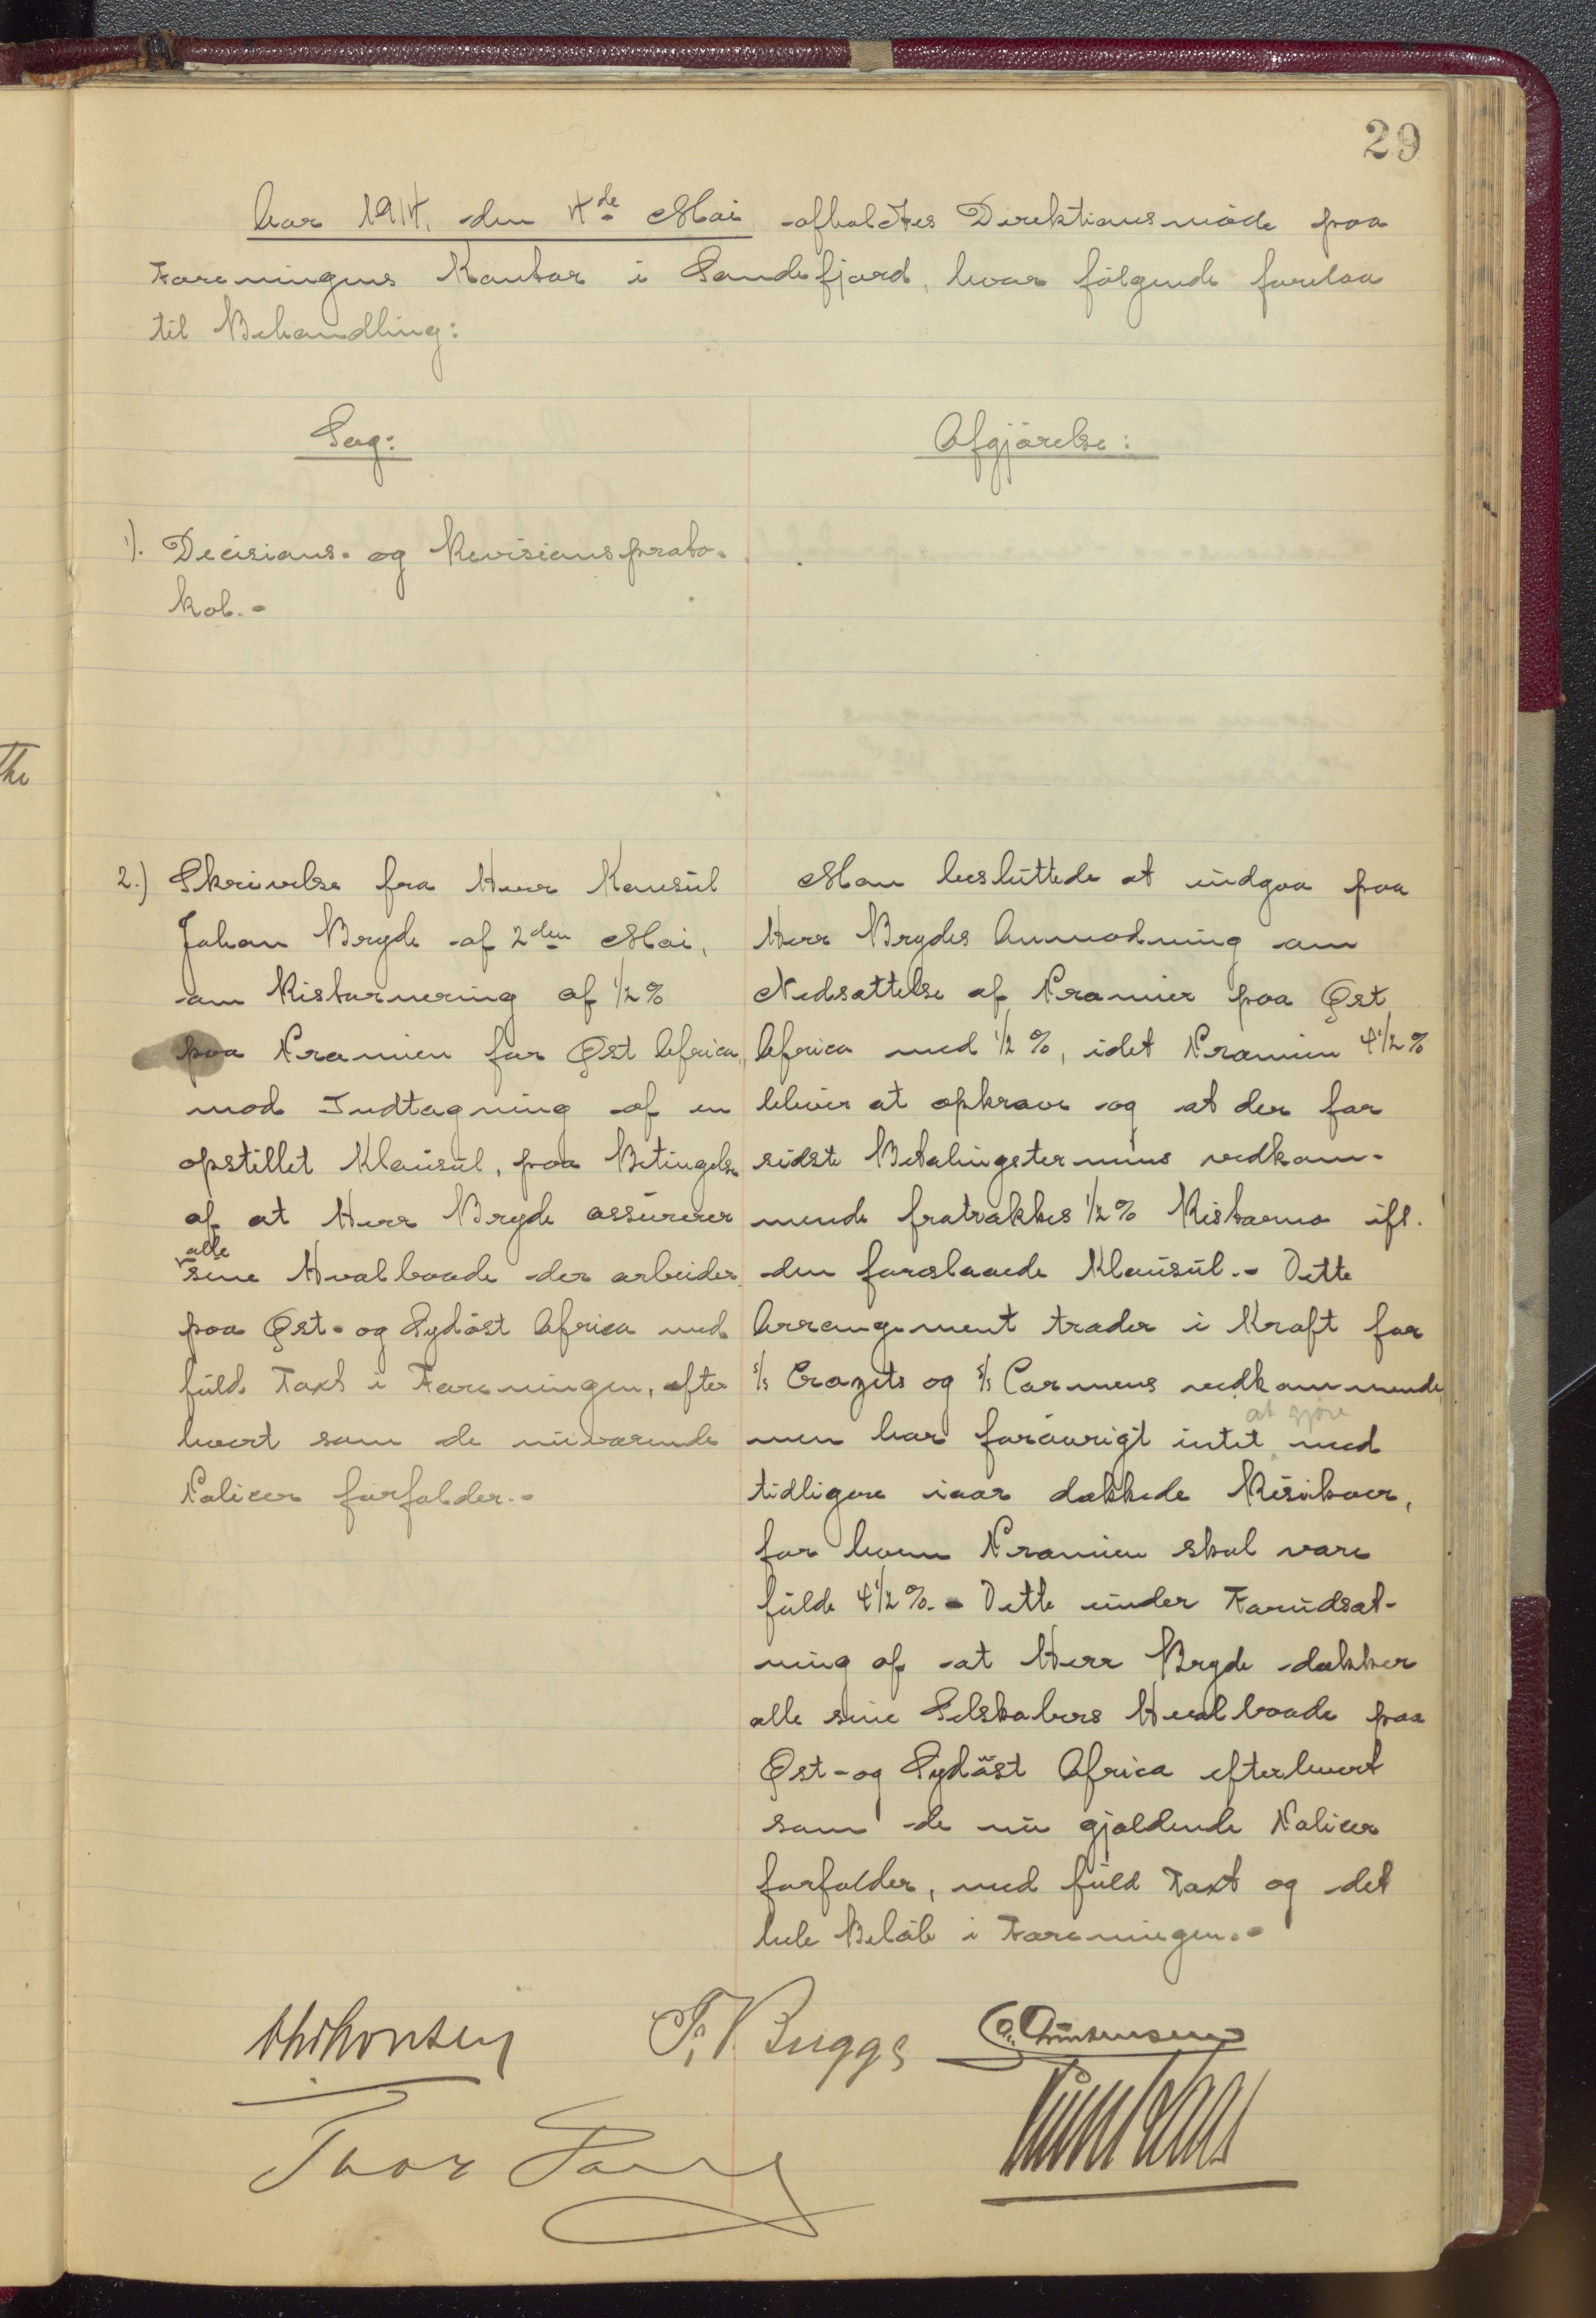 29
Aar 1914, den 4de Mai afholdtes Direktionsmöde paa
Foreningens Kontor i Sandefjord, hvor fölgende forelaa
til Behandling:
Sag:
1). Decisions- og Revisionsproto-
kol.-
2.) Skrivelse fra Herr Konsúl
Johan Bryde af 2den Mai,
om Ristornering af 1/2%
paa Præmien for Øst Africa,
mod Indtagning af en
opstillet Klaúsúl, paa Betingelse
af at Herr Bryde assúrerer
alle
sine Hvalbaade der arbeider
paa Øst- og Sydöst Africa med
fúld Taxt i Foreningen, efter
hvert som de núværende
Policer forfalder.-
Afgjörelse:
Man beslúttede at indgaa paa
Herr Brydes Anmodning om
Nedsættelse af Præmier paa Øst
Africa med 1/2 %, idet Præmien 4 1/2 %
bliver at opkræve og at der for
sidste Betalingstermins vedkom-
mende fratrækkes 1/2 % Ristorno ifl.
den foreslaaede Klaúsúl.- Dette
Arrangement træder i Kraft for
S/S Crozets og S/S Carmens vedkommende,
at gjøre
men har foröurigt intet med
tidligere iaar dækkede Risikoer,
for hvem Præmien skal være
fúlde 4 1/2 %.- Dette únder Forúdsæt-
ning af at Herr Bryde dækker
alle sine Selskabers Hvalbaade paa
Øst- og Sydöst Africa efterhvert
som de nú gjældende Policer
forfalder, med fúld Taxt og det
hele Belöb i Foreningen.-
F. Bugge
Thor Dahl
The